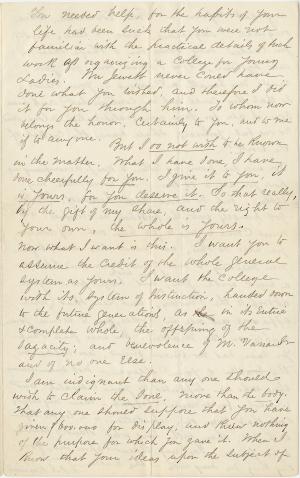 You needed help, for the habits of your
life had been such that you were not
familiar with the practical details of such
work as organizing a College for Young
Ladies. Mr Jewett never could have
done what you wished, and therefore I did
it for you through him. To whom now
belongs the honor, certainly to you, and to me
if to any one.
But I do not wish to be known
in the matter. What I have done, I have
done cheerfully for you. I give it to you, it
is yours, for you deserve it. So that really,
by the gift of my share, and the right to
your own, the whole is yours.
Now what I want is this. I want you to
assume the credit of the whole general
system as yours. I want the College
with its system of instruction, handed down
to the future generations, as in its entire
& complete whole, the offspring of the
sagacity, and benevolence of M. Vassar
and of no one else.
I am indignant than any one should
wish to claim the soul, more than the body.
That any one should suppose that you have
given for display, and knew nothing
of the purpose for which you gave it. When I
know that your ideas upon the subject of